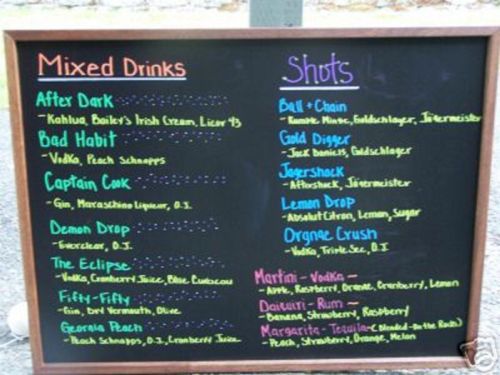 Mixed Drinks
After Dark
- Kahlua, Bailey's Irish Cream, Licor 43
Bad Habit
- Vodka, Peach Schnapps
Captain Cook
- Gin, Maraschino Liqueur, O.J.
Demon Drop
- Everclear, O.J.
The Eclipse
- Vodka, Cranberry Juice, Blue Curacau
Fifty-Fifty
- Gin, Dry Vermouth, Olive
Georgia Peach
- Peach Schnapps, O.J., Cranberry Juice
Shots
Ball + Chain
- Rumple Minze, Goldschlager, Jägermeister
Gold Digger
- Jack Daniels, Goldschlager
Jagershock
- Aftershock, Jägermeister
Lemon Drop
- Absolut Citron, Lemon, Sugar
Orgnae Crush
- Vodka, Triple Sec, O.J.
Martini - Vodka -
- Apple, Raspberry, Orange, Cranberry, Lemon
Daicuiri - Rum -
- Banana, Strawberry, Raspberry
Margarita - Tequila - (Blended - On the Rocks)
- Peach, Strawberry, Orange, Melon